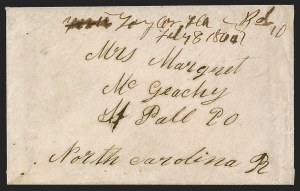 Taylor Fla Pd 10
Feby 8 1864
Mrs Marguet
Mc Geachy
St Pall PO
North Carolina